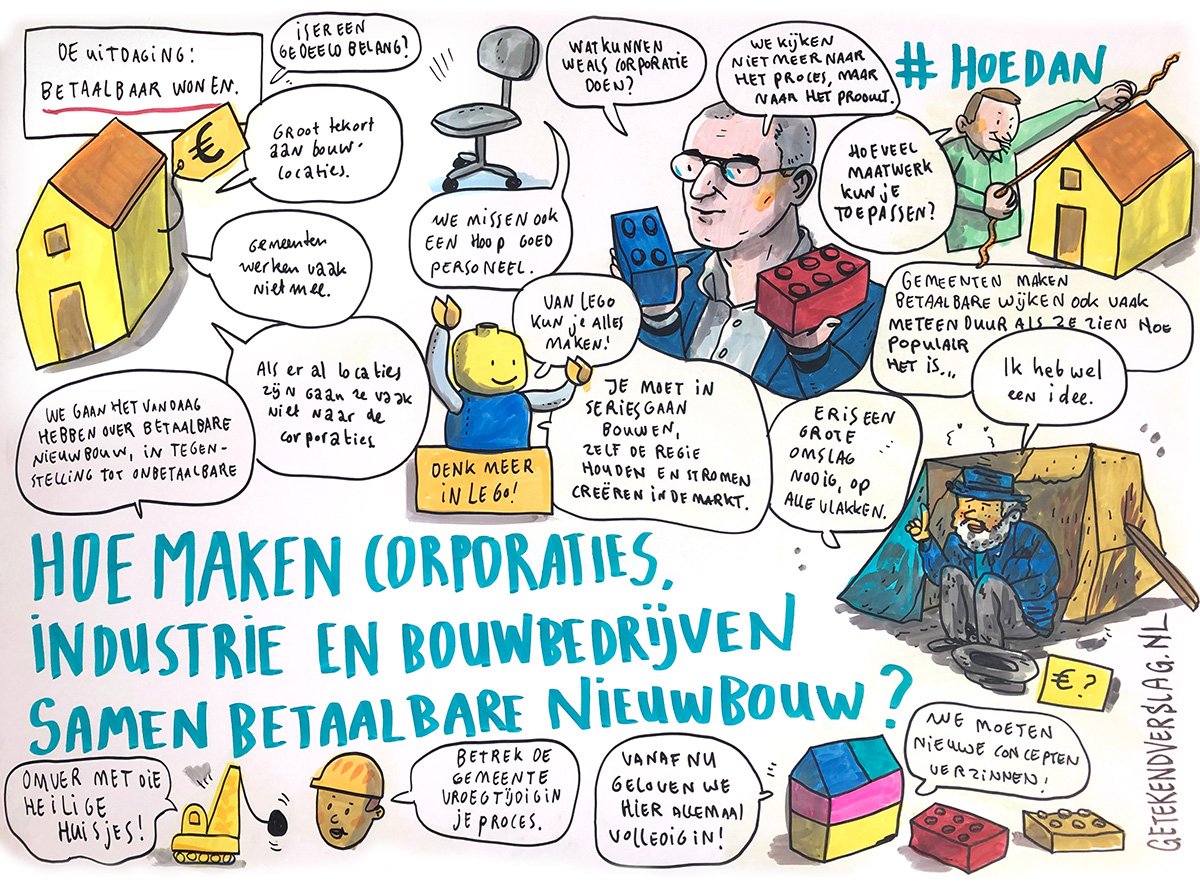 DE UITDAGING:
BETAALBAAR WONEN.
IS ER EEN
GEDEELD BELANG?
€
GROOT TEKORT
AAN BOUW-
LOCATIES.
GEMEENTEN
WERKEN VAAK
NIET MEE.
ALS ER AL LOCATIES
ZIJN GAAN ZE VAAK
NIET NAAR DE
CORPORATIES
WE GAAN HET VANDAAG
HEBBEN OVER BETAALBARE
NIEUWBOUW, IN TEGEN-
STELLING TOT ONBETAALBARE
WE MISSEN OOK
EEN HOOP GOED
PERSONEEL.
WAT KUNNEN
WE ALS CORPORATIE
DOEN?
WE KIJKEN
NIET MEER NAAR
HET PROCES, MAAR
NAAR HET PRODUCT.
# HOEDAN
HOEVEEL
MAATWERK
KUN JE
TOEPASSEN?
VAN LEGO
KUN JE ALLES
MAKEN!
DENK MEER
IN LEGO!
JE MOET IN
SERIES GAAN
BOUWEN,
ZELF DE REGIE
HOUDEN EN STROMEN
CREËREN IN DE MARKT.
GEMEENTEN MAKEN
BETAALBARE WIJKEN OOK VAAK
METEEN DUUR ALS ZE ZIEN HOE
POPULAIR
HET IS...
ER IS EEN
GROTE
OMSLAG
NODIG, OP
ALLE VLAKKEN.
Ik heb wel
een idee.
€.?
HOE MAKEN CORPORATIES,
INDUSTRIE EN BOUWBEDRIJVEN
SAMEN BETAALBARE NIEUWBOUW?
OMVER MET DIE
HEILIGE
HUISJES!
BETREK DE
GEMEENTE
VROEGTIJDIG IN
JE PROCES.
VANAF NU
GELOVEN WE
HIER ALLEMAAL
VOLLEDIG IN!
WE MOETEN
NIEUWE CONCEPTEN
VERZINNEN!
GETEKENDVERSLAG.NL